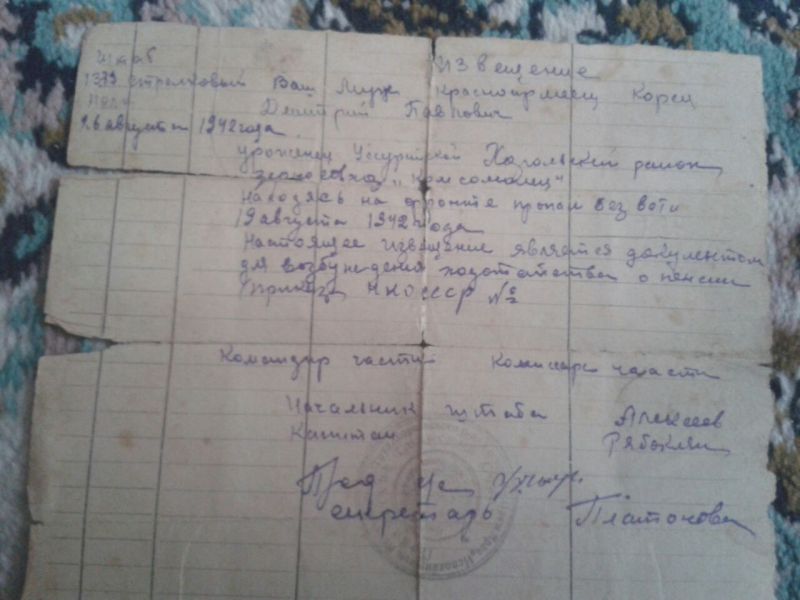 Штаб Извещение
стрелковый Ваш Муж красноармеец Корец
полк Дмитрий Павлович
августа 1942 года
уроженец Уссурийской район
зерносовхоз „Комсомолец"
находясь на фронте пропал без вести
19 августа 1942 года
Настоящее извещение является документом
для возбуждения ходатайства о пенсии
НКОСССР №
Командир части Комиссар части
Начальник штаба Алексеев
Капитан
Пред
секретарь Платонова